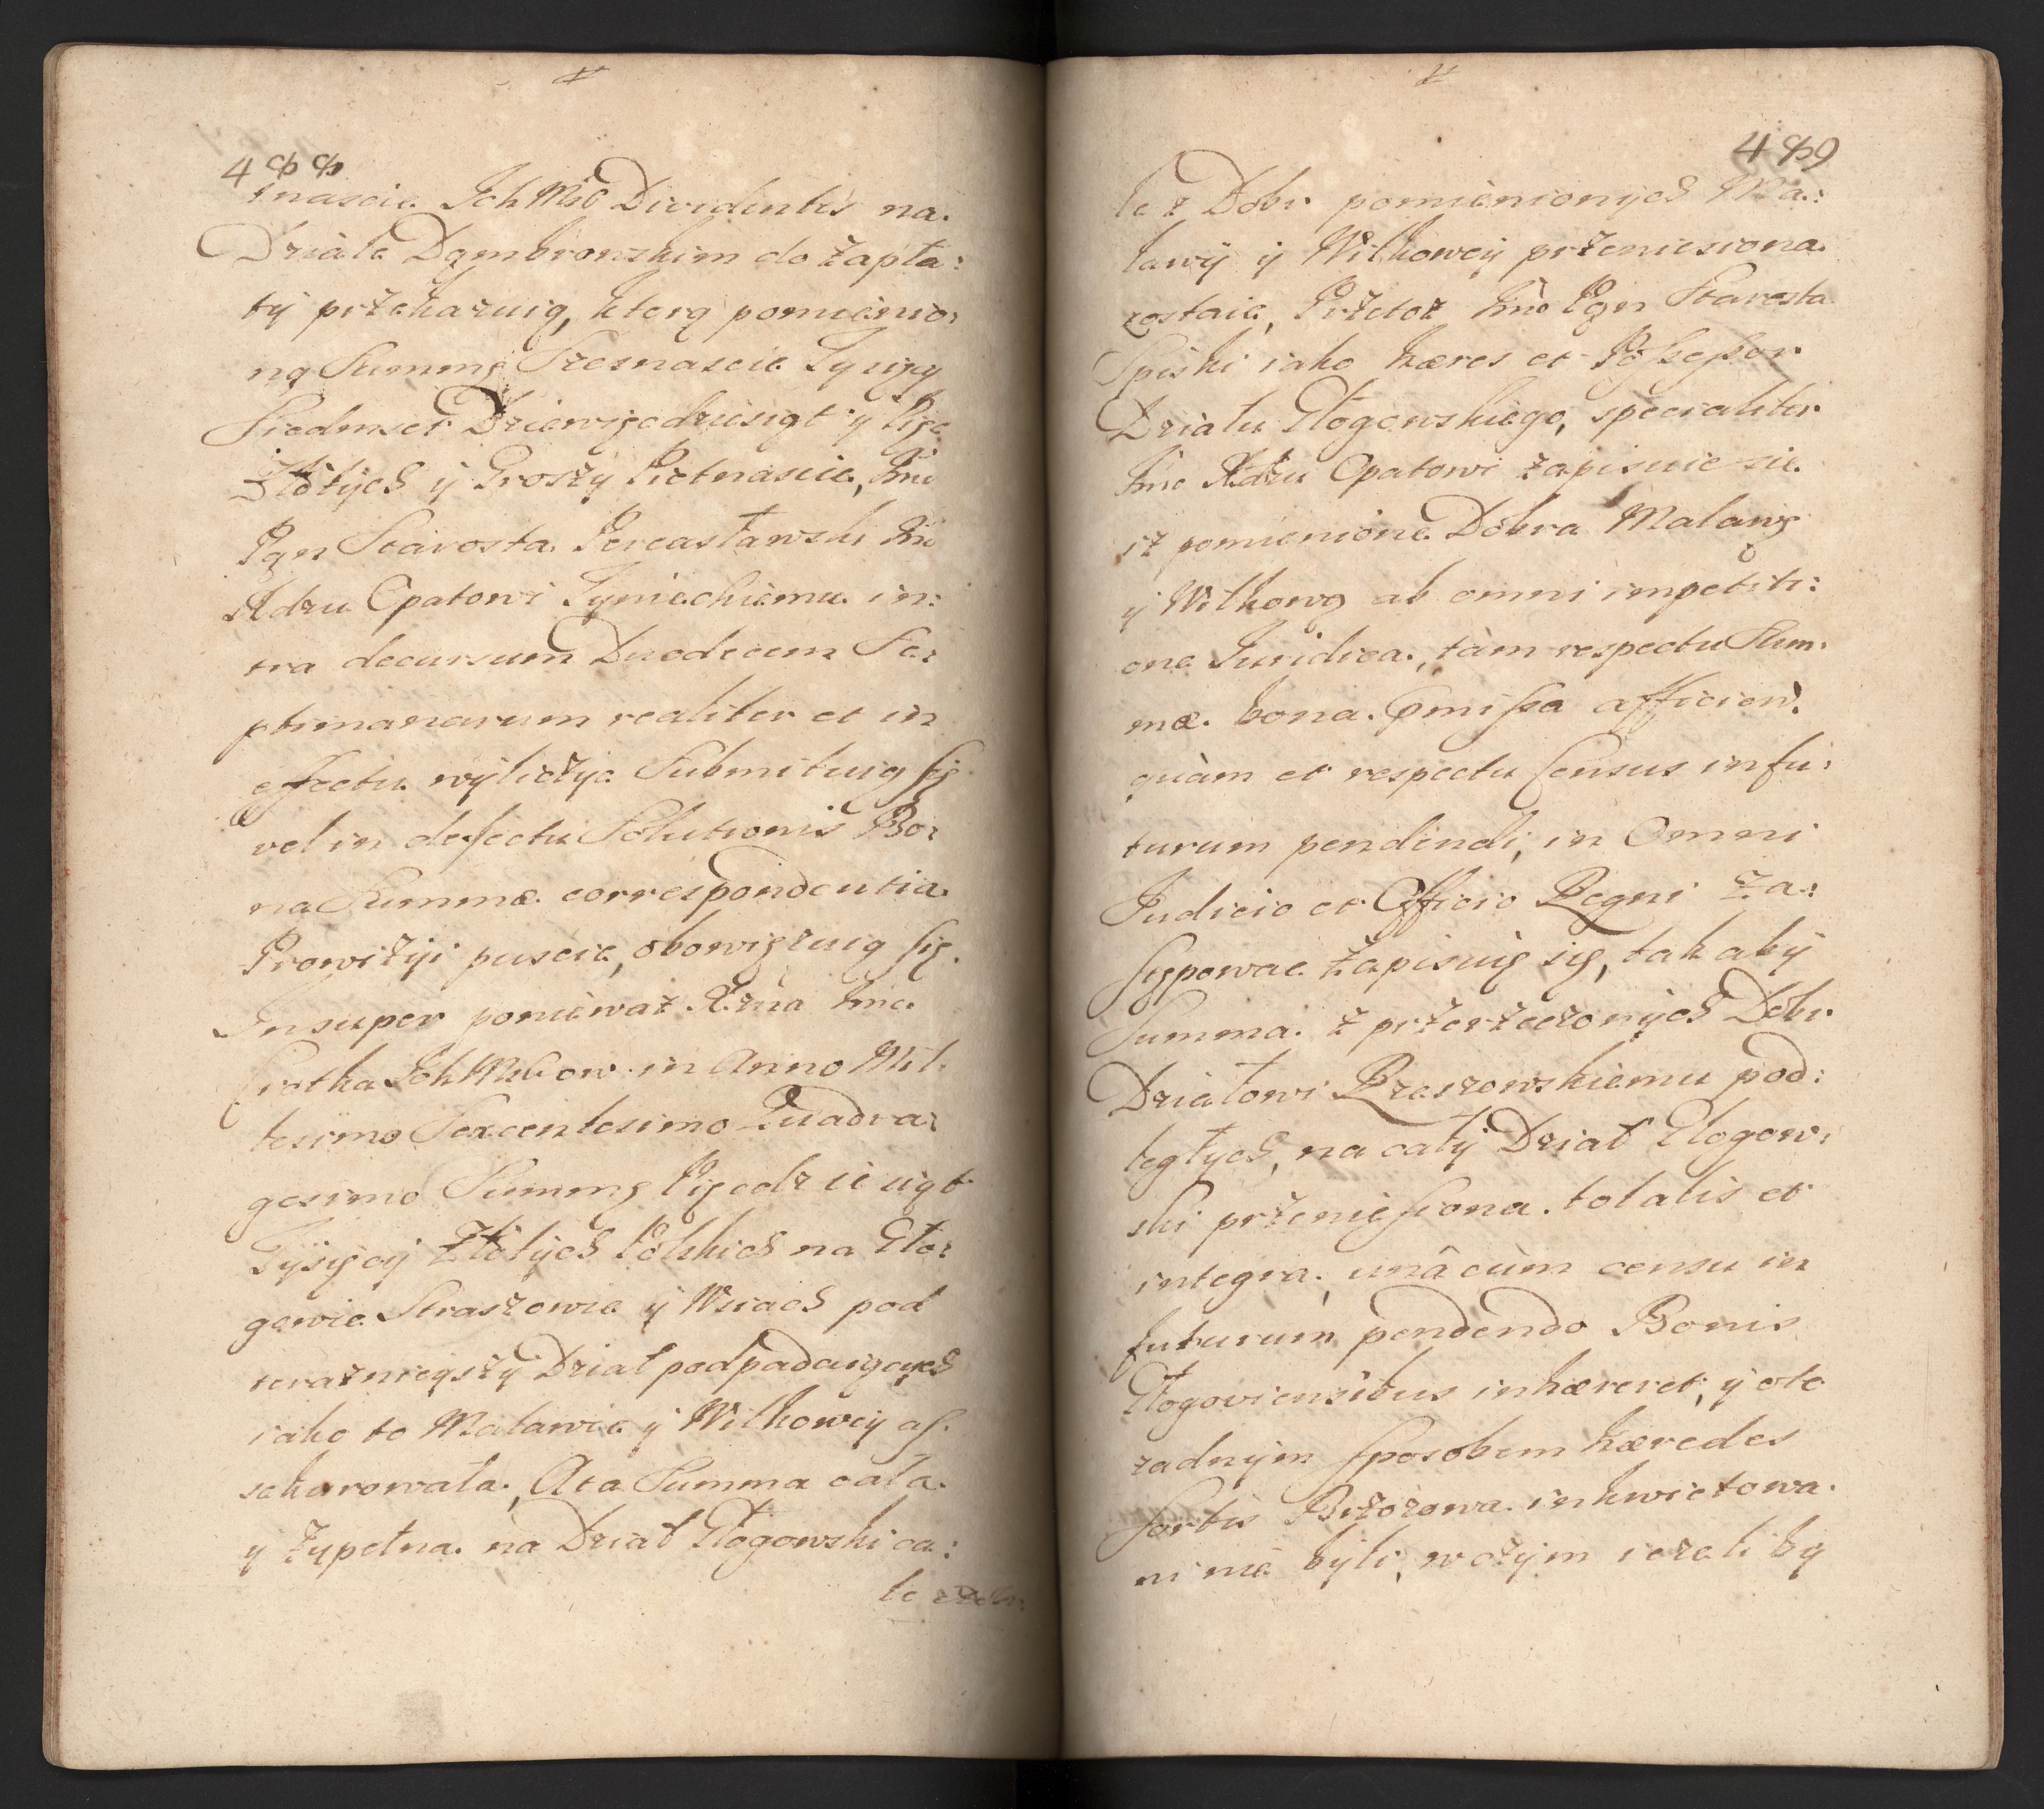 488
tnascie IchMść Dividentes na
Dziale Dąmbrowskim do zapła:
ty przekazuią, ktorą pomienio:
ną Summę Szesnascie Tysięcy
Siedmset Dziewięcdziesiąt y Pięc
Złotych y Groszy Piętnascie, Jmć
Pan Starosta Pereasławski Jmć
Xdzu Opatowi Tynieckiemu in:
tra decursum Duodecem Se:
ptimanarum realiter et in
effectu wyliczyc Submituią się
vel in defectu Solutionis Bo:
na Summæ correspondentia
Prowizyi puscic, obowięzuią się.
Insuper poniewaz Xżna Jmć
Ciotka IchMciow in Anno Mil:
lesimo Sexcentesimo Quadra:
gesimo Summę Pięcdziesiąt
Tysięcy Złotych Polskich na Gło:
gowie Straszowie y Wsiach pod
teraznieyszy Dział podpadaiących
iako to Malawie y Wilkowey as:
sekurowała, A ta Summa cała
y zupełna na Dział Głogowski ca:
le z Dobr
489
le z Dobr pomienionych Ma:
lawy y Wilkowey przeniesiona
zostaie, Przetoż Jmć Pan Starosta
Spiski iako hæres et Possessor
Działu Głogowskiego, specialiter
Jmć Xdzu Opatowi zapisuie sie
iz pomienione Dobra Malawę
y Wilkową ab omni impetiti:
one Juridica, tàm respectu Sum:
mæ bona præmissa afficien:
quàm et respectu Census in fu:
turum pendendi, in Omni
Judicio et Officio Regni Za:
stępowac zapisuię się, tak aby
Summa z przerzeczonych Dobr
Działowi Rzeszowskiemu pod:
ległych, na cały Dział Głogow:
ski przeniesiona totalis et
integra, unâ cùm censu in
futurum pendendo Bonis
Głogoviensibus inhæreret, y oto
zadnym sposobem hæredes
Sortis Rzeszowa inkwietowa
ni nie byli, w czym iezeliby